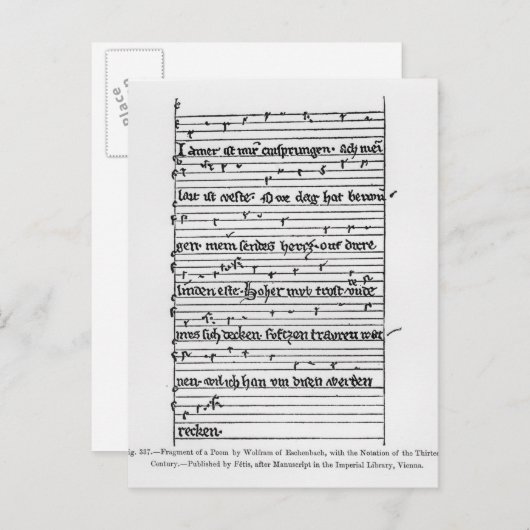 I amer ist mir entsprungen. Ach mein
lait ist veste. O we dag hat betwū
gen. mein sendes hercz. ouf dirre
linden este. Hoher myt trost vnde
mes sich decken. sevftzen travren wor
nen. wil ich han vm disen werden
recken.
ig. 337.—Fragment of a Poem by Wolfram of Eschenbach, with the Notation of the Thirtee
Century.—Published by Fétis, after Manuscript in the Imperial Library, Vienna.